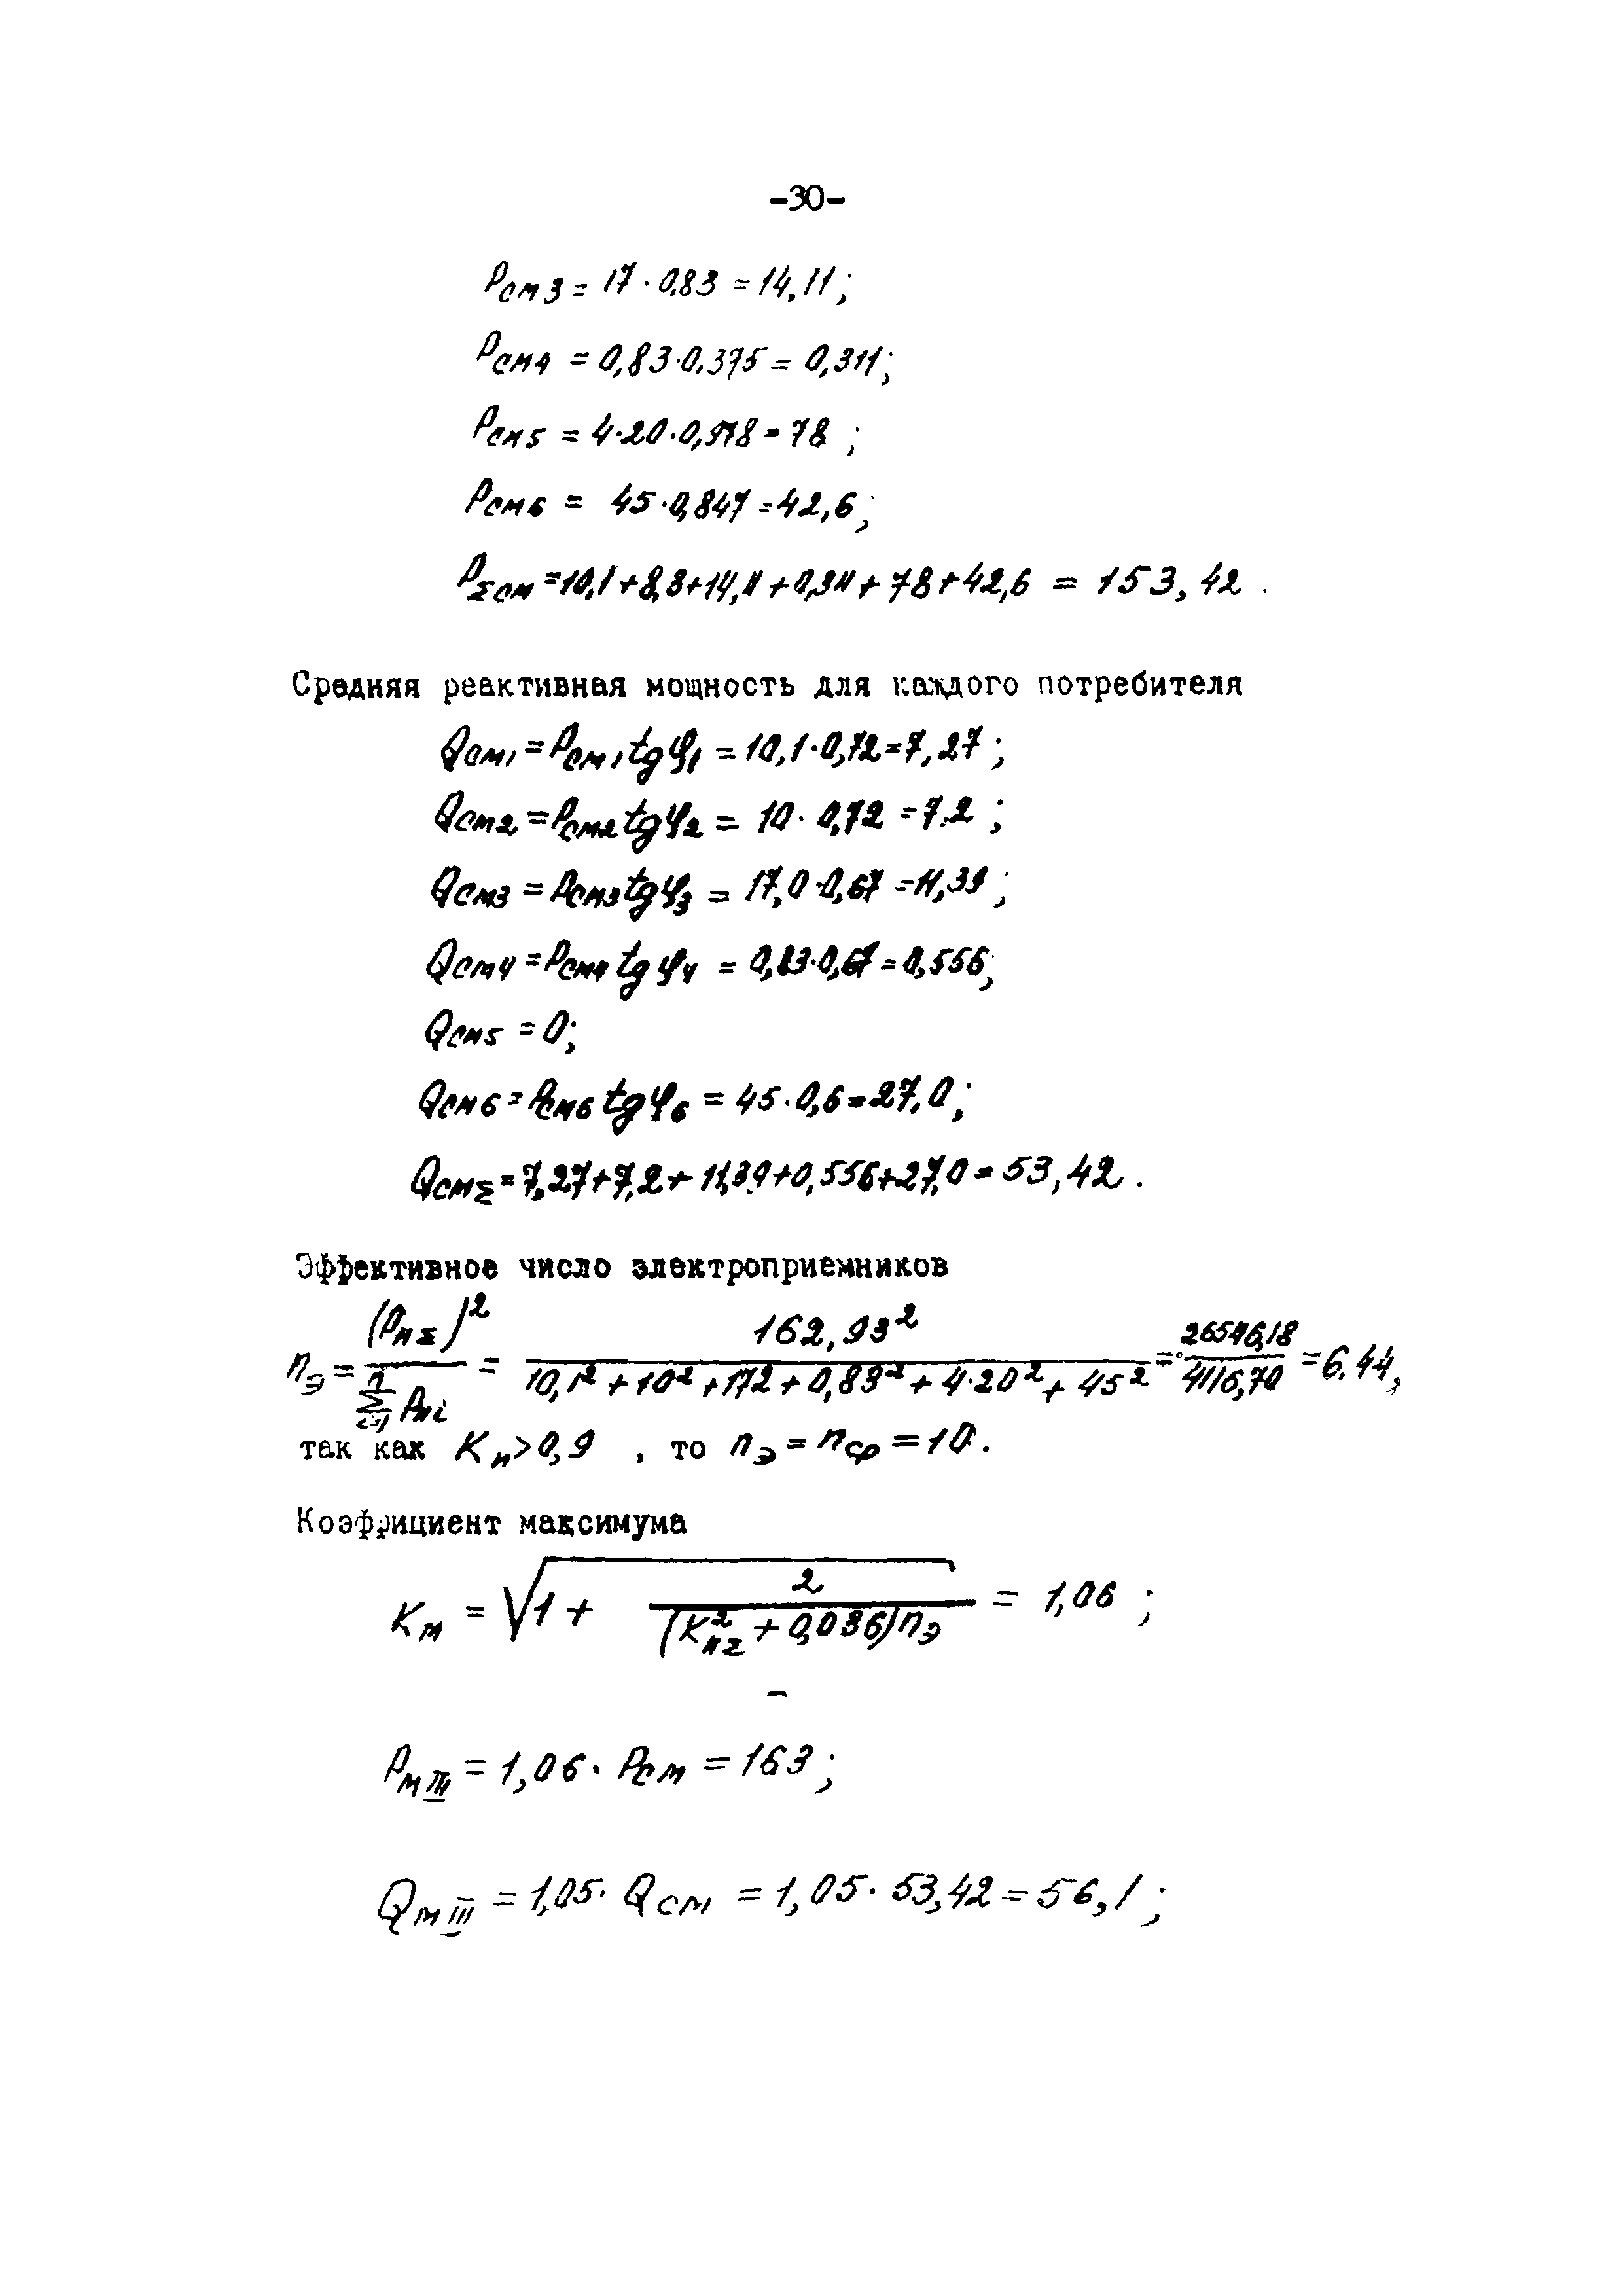 -30-
Pсм3 = 17 · 0,83 = 14,11;
Pсм4 = 0,83·0,375 = 0,311;
Pсм5 = 4·20·0,978 = 78 ;
Pсм6 = 45·0,847 = 42,6;
PΣсм = 10,1+8,3+14,11+0,311+78+42,6 = 153,42 .
Средняя реактивная мощность для каждого потребителя
Qсм1 = Pсм1 tgφ1 = 10,1·0,72 = 7,27 ;
Qсм2 = Pсм2 tgφ2 = 10· 0,72 = 7.2 ;
Qсм3 = Pсм3 tgφ3 = 17,0·0,67 = 11,39 ;
Qсм4 = Pсм4 tgφ4 = 0,83·0,67 = 0,556;
Qсм5 = 0;
Qсм6 = Pсм6 tgφ6 = 45·0,6 = 27,0;
QсмΣ = 7,27+7,2+11,39+0,556+27,0 = 53,42.
Эффективное число электроприемников
nэ = (PнΣ)² / Σⁿᵢ₌₁ Pнi = 162,93² / 10,1²+10²+17²+0,83²+4·20²+45² = 26546,18 / 4116,70 = 6.44,
так как Kи>0,9 , то nэ = nср = 10.
Коэффициент максимума
Kм = √1 + 2 / (K²иΣ + 0,036)nэ = 1,06 ;
Pм III = 1,06· Pсм = 163;
Qм III = 1,05· Qсм = 1,05· 53,42 = 56,1;